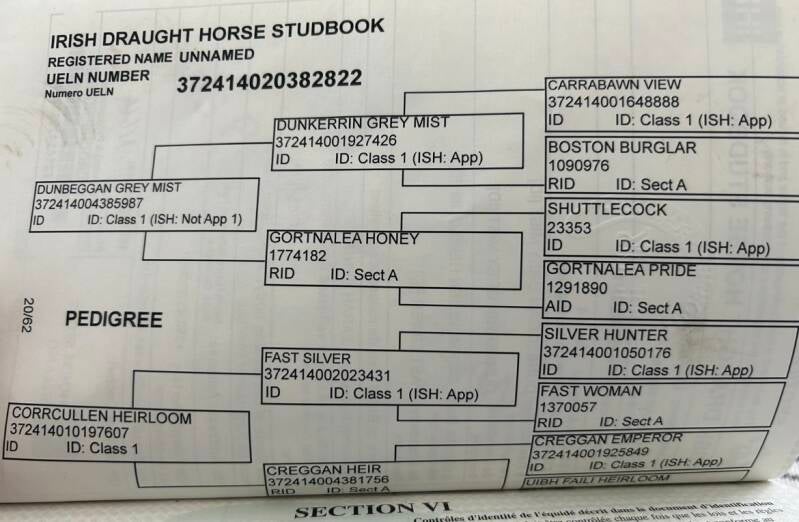 IRISH DRAUGHT HORSE STUDBOOK
REGISTERED NAME UNNAMED
UELN NUMBER 372414020382822
Numero UELN
CARRABAWN VIEW
372414001648888
ID ID: Class 1 (ISH: App)
DUNKERRIN GREY MIST
372414001927426
ID ID: Class 1 (ISH: App)
BOSTON BURGLAR
1090976
RID ID: Sect A
DUNBEGGAN GREY MIST
372414004385987
ID ID: Class 1 (ISH: Not App 1)
SHUTTLECOCK
23353
ID ID: Class 1 (ISH: App)
GORTNALEA HONEY
1774182
RID ID: Sect A
GORTNALEA PRIDE
1291890
AID ID: Sect A
20/62
PEDIGREE
SILVER HUNTER
372414001050176
ID ID: Class 1 (ISH: App)
FAST SILVER
372414002023431
ID ID: Class 1 (ISH: App)
FAST WOMAN
1370057
RID ID: Sect A
CORRCULLEN HEIRLOOM
372414010197607
ID ID: Class 1
CREGGAN EMPEROR
372414001925849
ID ID: Class 1 (ISH: App)
CREGGAN HEIR
372414004381756
RID ID: Sect A
UIBH FAILI HEIRLOOM
SECTION VI
Contrôles d'identité de l'équidé décrit dans le document d'identification